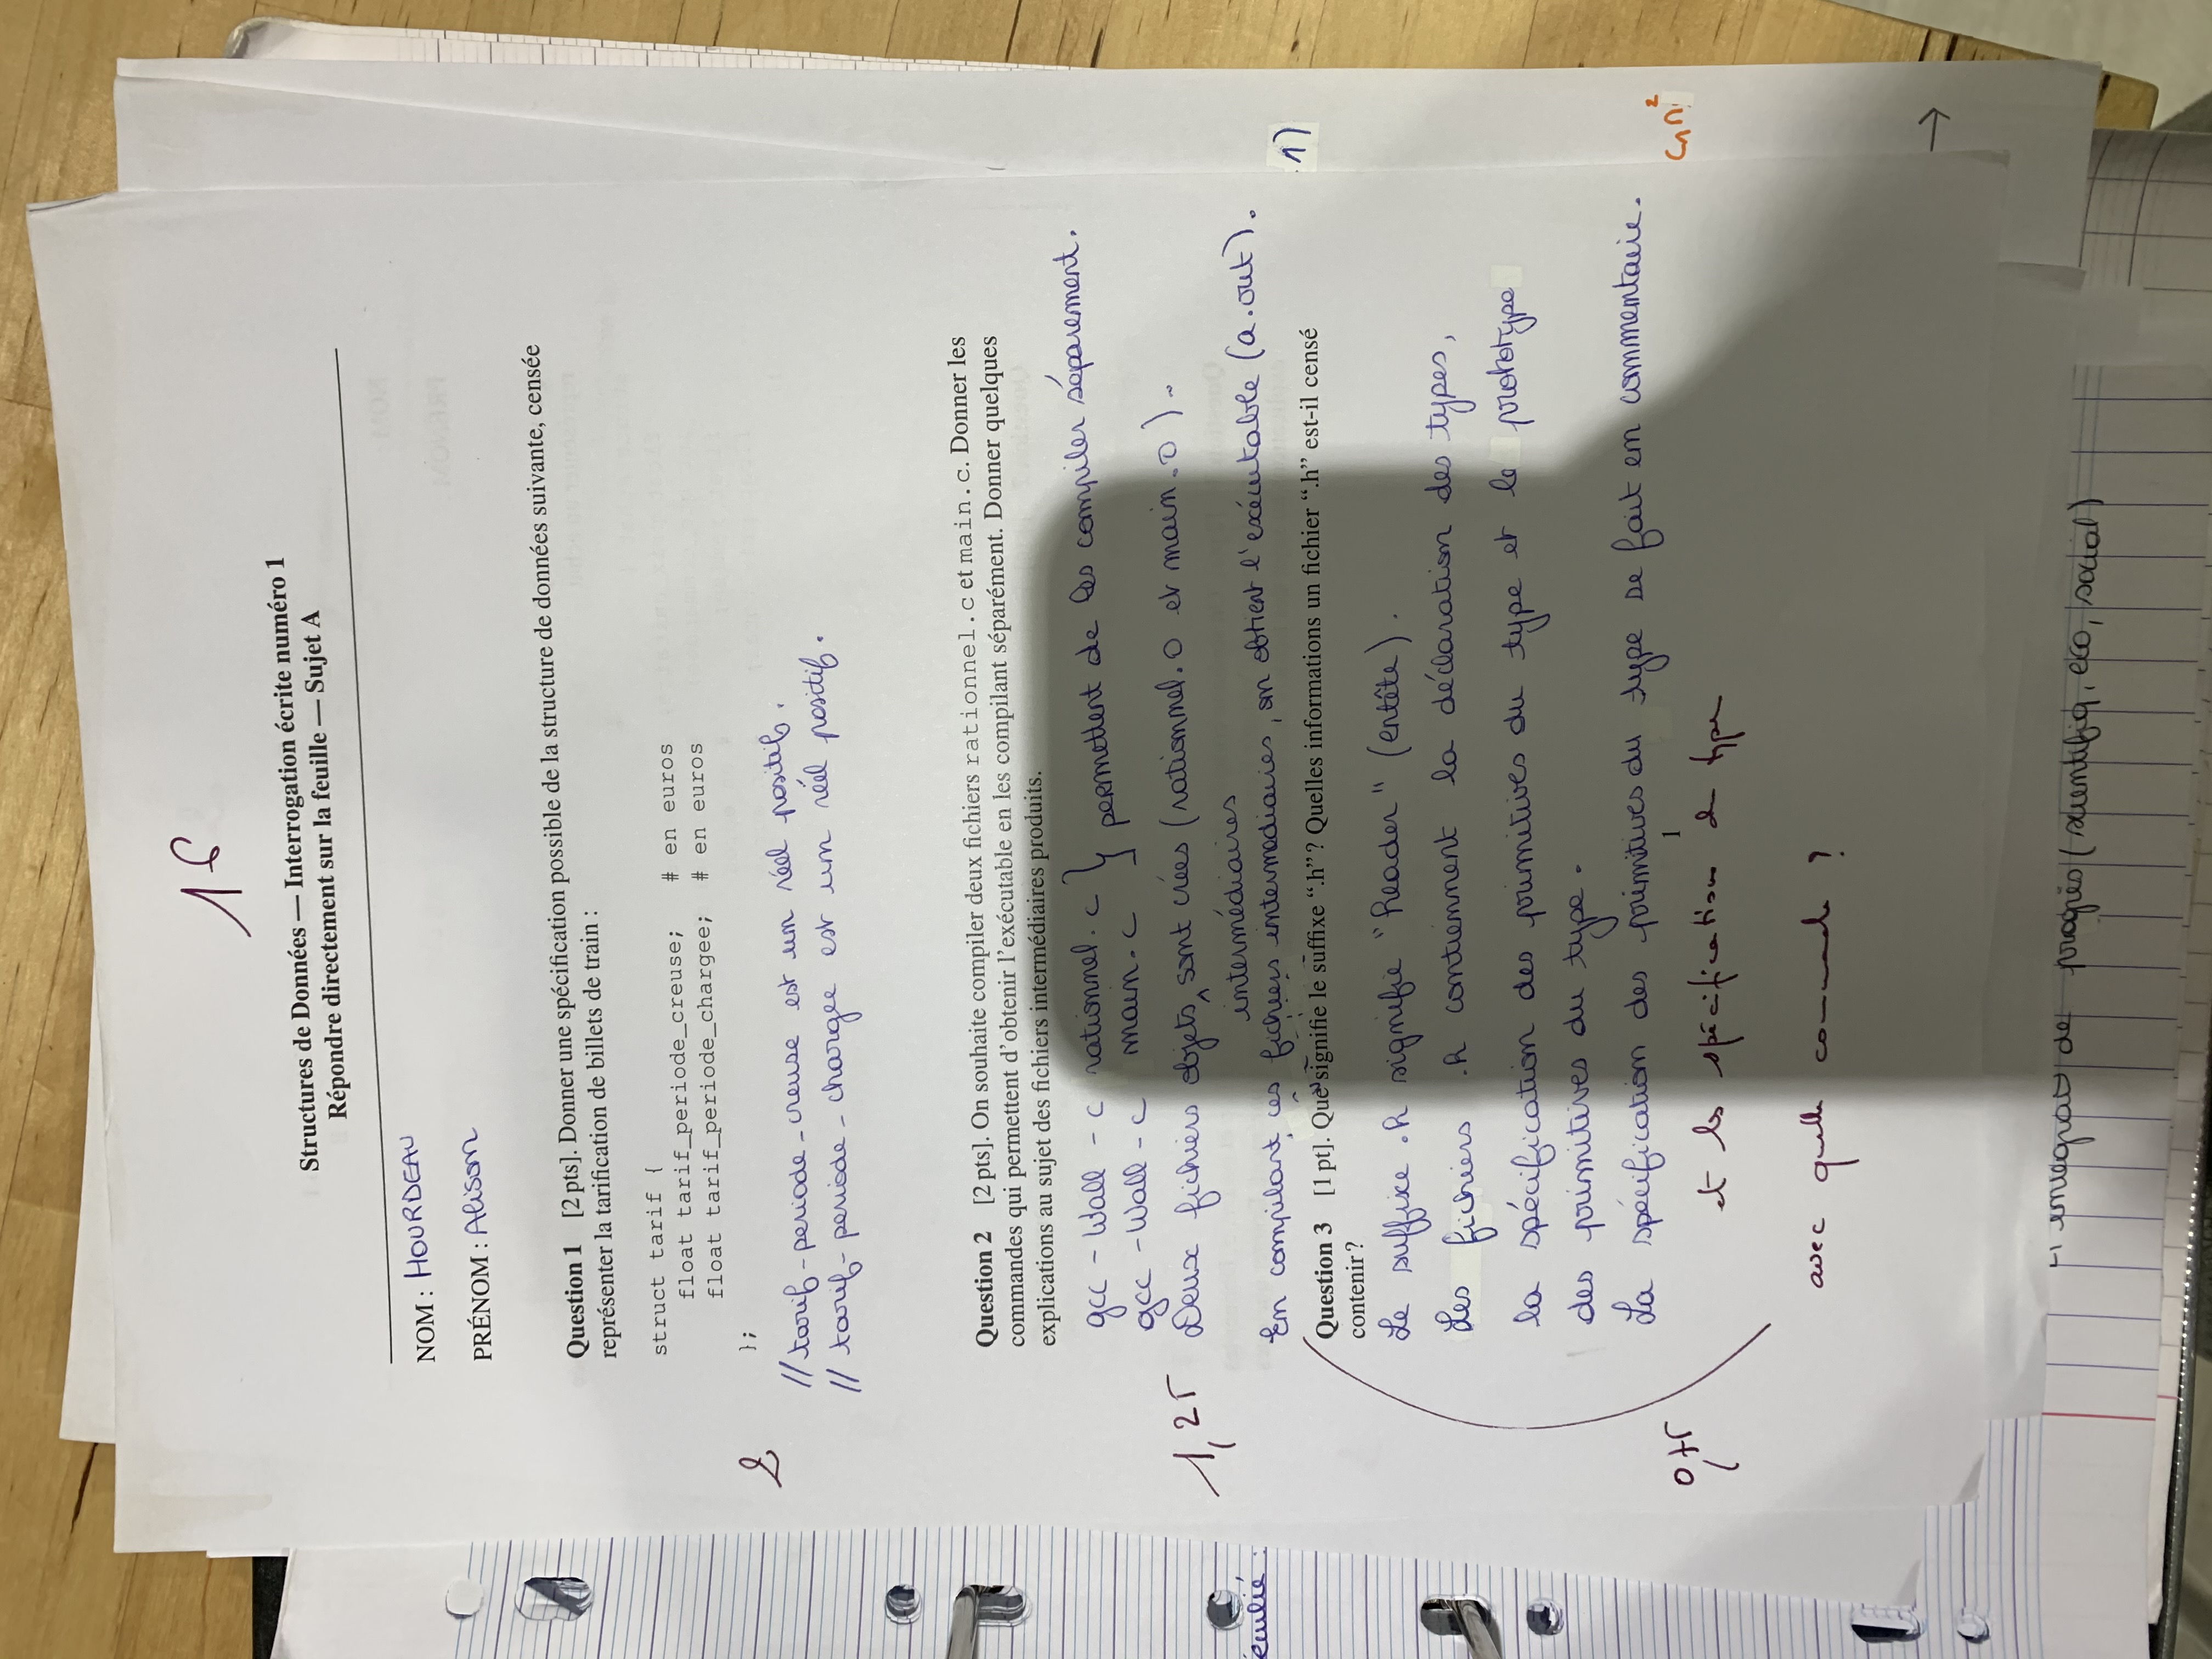 16
Structures de Données — Interrogation écrite numéro 1
Répondre directement sur la feuille — Sujet A
NOM : HOURDEAU
PRÉNOM : Alison
Question 1 [2 pts]. Donner une spécification possible de la structure de données suivante, censée
représenter la tarification de billets de train :
struct tarif {
float tarif_periode_creuse; # en euros
float tarif_periode_chargee; # en euros
};
2
// tarif-periode-creuse est un réel positif.
// tarif-periode-chargee est un réel positif.
Question 2 [2 pts]. On souhaite compiler deux fichiers rationnel.c et main.c. Donner les
commandes qui permettent d'obtenir l'exécutable en les compilant séparément. Donner quelques
explications au sujet des fichiers intermédiaires produits.
gcc -Wall -c rationnel.c } permettent de les compiler séparement.
gcc -Wall -c main.c
1,25
Deux fichiers objets sont crées (rationnel.o et main.o).
intermédiaires
En compilant ces fichiers intermediaries, on obtient l'exécutable (a.out).
Question 3 [1 pt]. Que signifie le suffixe “.h” ? Quelles informations un fichier “.h” est-il censé
contenir ?
Le suffixe .h signifie "header" (entête).
Les fichiers .h contiennent la déclaration des types,
la spécification des primitives du type et le prototype
des primitives du type.
La spécification des primitives du type se fait en commentaire.
1
et les spécifications du type
avec quelle commande ?
éculié :
1)
→
intégrat de progrès (scientifiq, eco, social)